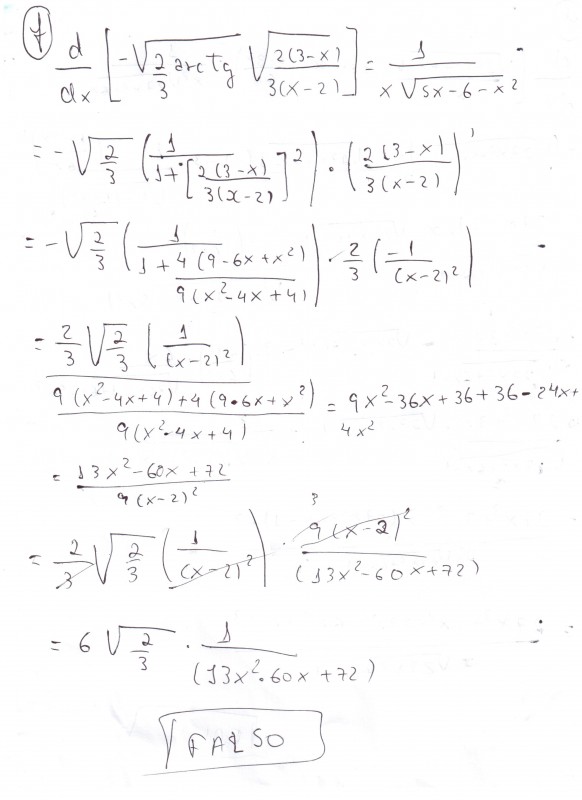 7) d/dx [-√(2/3) arctg √(2(3-x)/3(x-2))] = 1/(x√(5x-6-x²))
= -√(2/3) (1/(1+[2(3-x)/3(x-2)]²)) · (2(3-x)/3(x-2))'
= -√(2/3) (1/(1+4(9-6x+x²)/9(x²-4x+4))) · 2/3 (-1/(x-2)²)
= 2/3 √(2/3) (1/(x-2)²)
9(x²-4x+4)+4(9-6x+x²)/9(x²-4x+4) = 9x²-36x+36+36-24x+
4x²
= 13x²-60x+72/9(x-2)²
3
= 2/3 √(2/3) (1/(x-2)²) · 9(x-2)²/(13x²-60x+72)
= 6 √(2/3) · 1/(13x²-60x+72)
FALSO